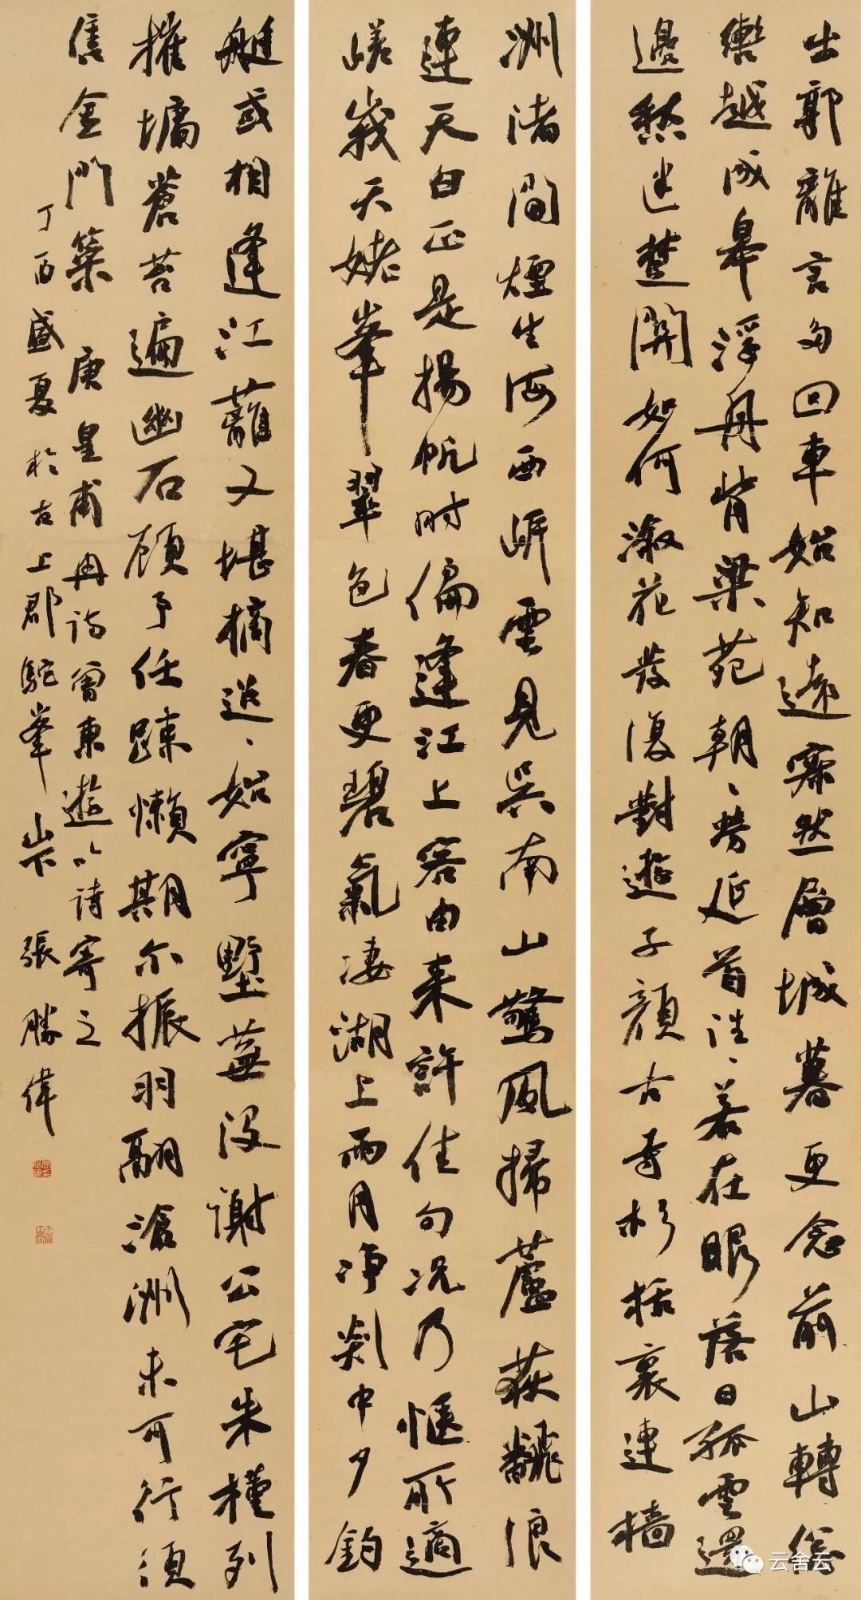 出郭離言多回車始知遠寂然層城暮更念前山轉總
轡越成皋浮舟背梁苑朝〻勞延首往〻若在眼落日孤雲還
邊愁迷楚關如何淑花發復對遊子顏古寺杉栝裏連檣
洲渚間煙生海西岸雲見吳南山驚風掃蘆荻翻浪
連天白正是揚帆時偏逢江上客由来許佳句況乃愜所適
嵯峩天姥峯翠色春更碧氣凄湖上雨月净剡中夕釣
艇或相逢江蘺又堪摘迢〻始寧墅蕪沒謝公宅朱槿列
摧墉蒼苔遍幽石顧予任疎懶期尒振羽翮滄洲未可行須
售金門策 唐皇甫冉詩曾東遊以詩寄之
丁酉盛夏於古上郡駝峯山下 張勝偉
云舍云